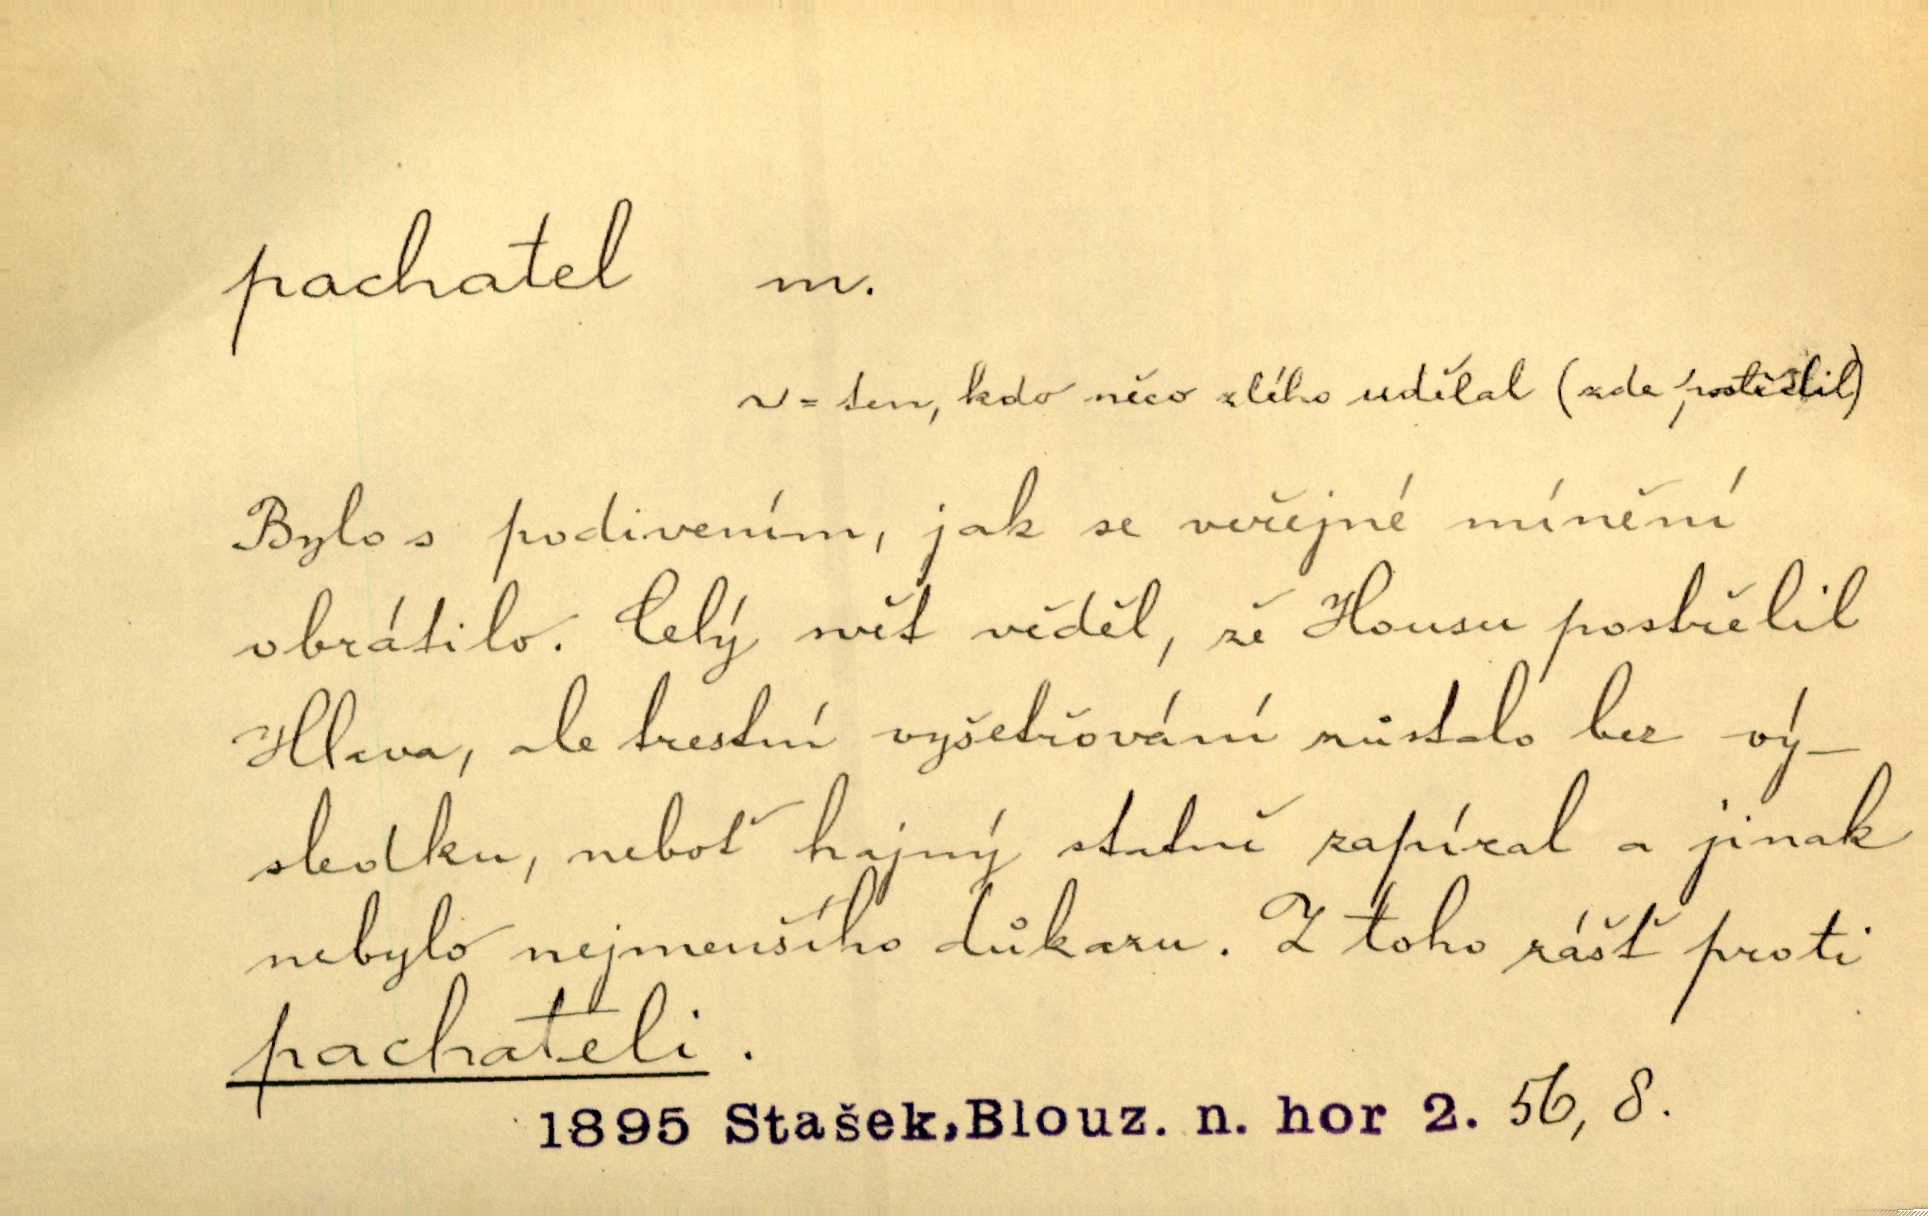 pachatel m.
v = ten, kdo něco zlého udělal (zde postřelil)
Bylo s podivením, jak se veřejné mínění
obrátilo. Celý svět věděl, že Housu postřelil
Hlava, ale trestní vyšetřování zůstalo bez vý-
sledku, neboť hajný statně zapíral a jinak
nebylo nejmenšího důkazu. Z toho zášť proti
pachateli.
1895 Stašek, Blouz. n. hor 2. 56, 8.